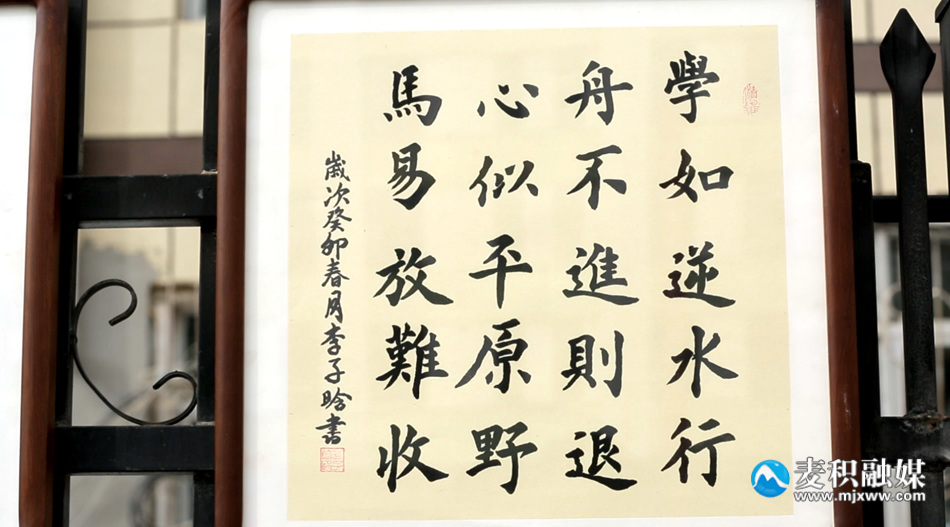 學如逆水行
舟不進則退
心似平原野
馬易放難收
歲次癸卯春月李子晗書
麦积融媒
www.mjxww.com